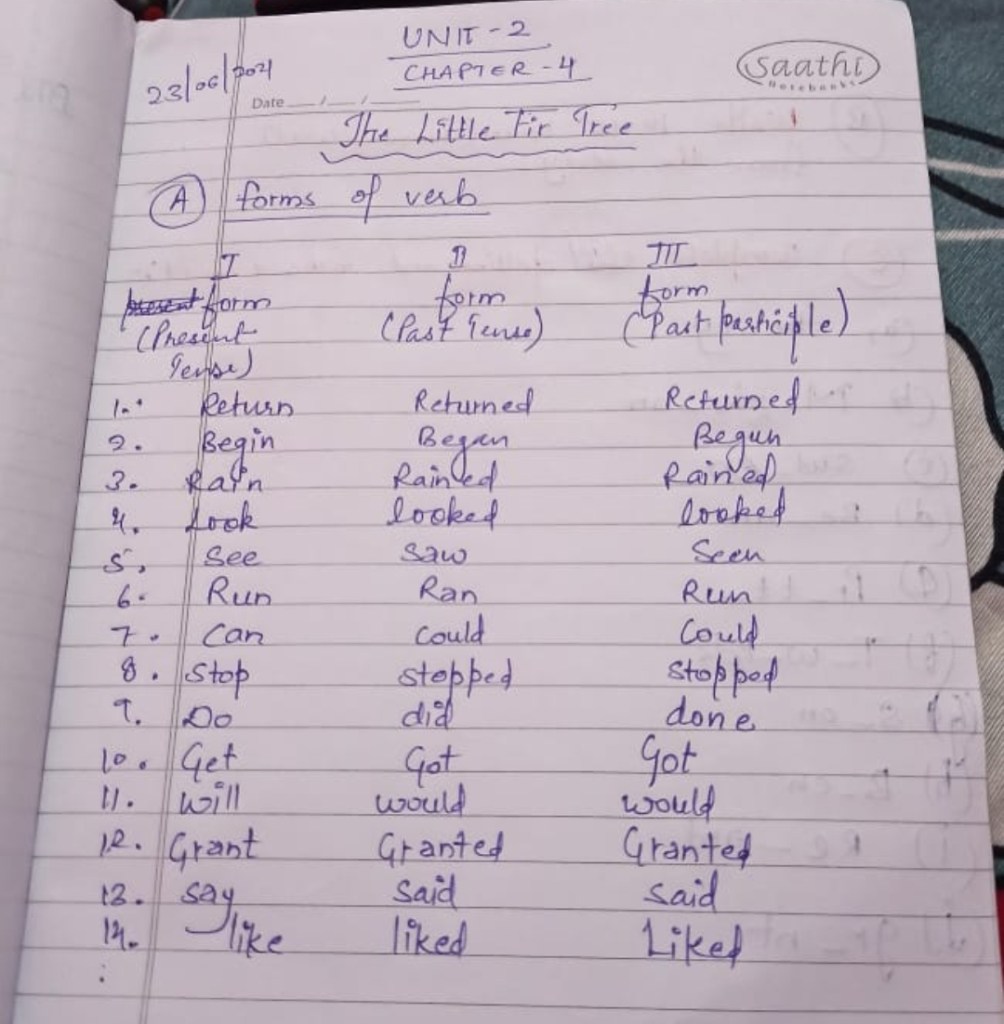 UNIT-2
23/06/2021 CHAPTER-4 Saathi
Date __/__/__ Notebooks
The Little Fir Tree
(A) forms of verb
I II III
present form form form
(Present (Past Tense) (Past participle)
Tense)
1. Return Returned Returned
2. Begin Began Begun
3. Rain Rained Rained
4. Look looked looked
5. See Saw Seen
6. Run Ran Run
7. Can Could Could
8. Stop stopped stopped
9. Do did done
10. Get Got Got
11. will would would
12. Grant Granted Granted
13. say said said
14. like liked Liked